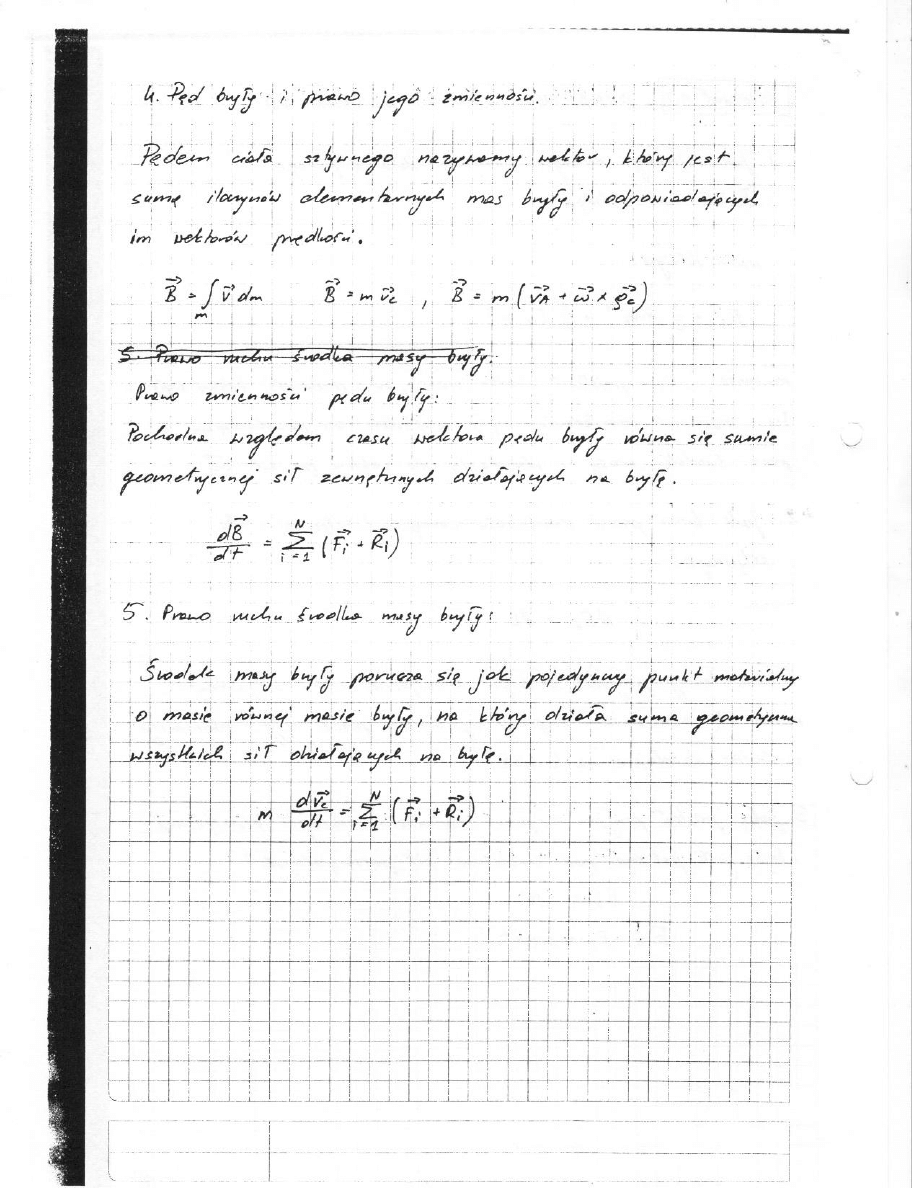 4. Pęd bryły i prawo jego zmienności.
Pędem ciała sztywnego nazywamy wektor, który jest
sumą iloczynów elementarnych mas bryły i odpowiadających
im wektorów prędkości.
$\vec{B} = \int_m \vec{v} dm$    $\vec{B} = m \vec{v_c}$ , $\vec{B} = m (\vec{v_A} + \vec{\omega} \times \vec{\varrho_c})$
5. Prawo ruchu środka masy bryły.
Prawo zmienności pędu bryły:
Pochodna względem czasu wektora pędu bryły równa się sumie
geometrycznej sił zewnętrznych działających na bryłę.
$\frac{d\vec{B}}{dt} = \sum_{i=1}^{N} (\vec{F_i} + \vec{R_i})$
5. Prawo ruchu środka masy bryły:
Środek masy bryły porusza się jak pojedynczy punkt materialny
o masie równej masie bryły, na który działa suma geometryczna
wszystkich sił działających na bryłę.
$m \frac{d\vec{v_c}}{dt} = \sum_{i=1}^{N} (\vec{F_i} + \vec{R_i})$